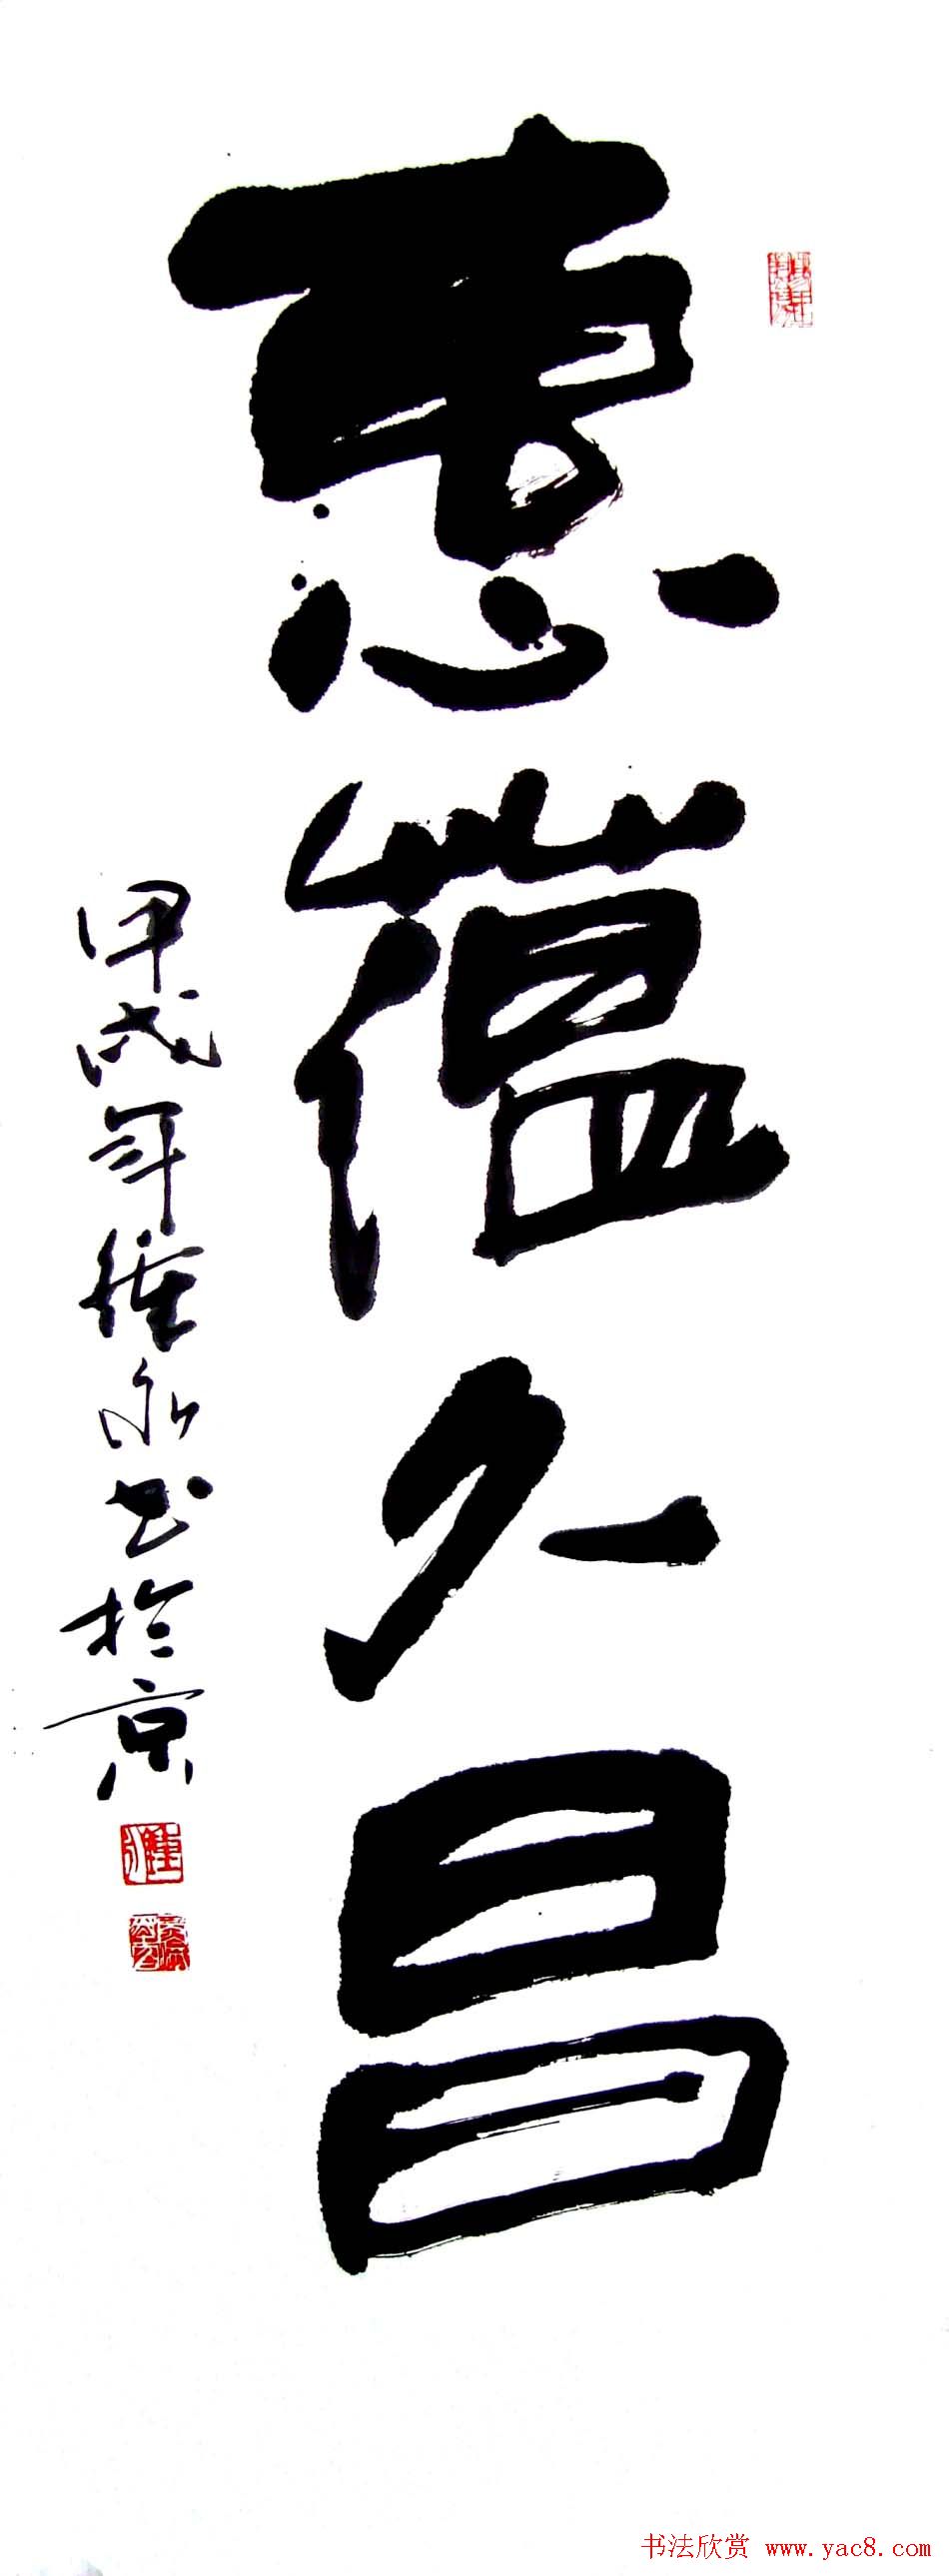 惠蕴久昌
甲戌年维永书於京
书法欣赏 www.yac8.com